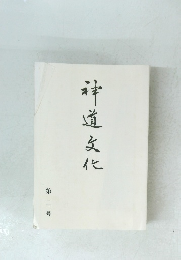 神道文化
第一号